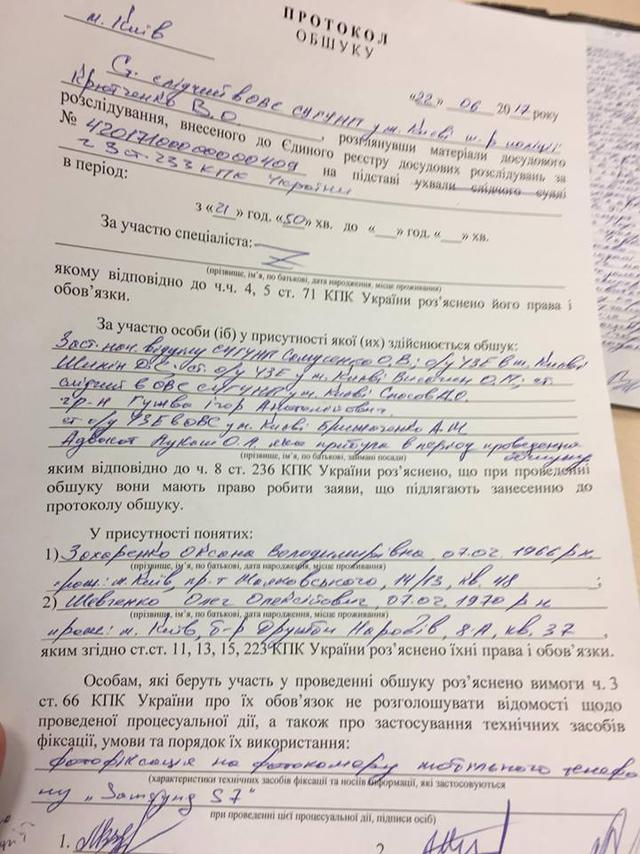 м. Київ
ПРОТОКОЛ
ОБШУКУ
«22» 06 2017 року
Ст. слідчий в ОВС СУ ГУНП у м. Києві
В.О. , розглянувши матеріали досудового
розслідування, внесеного до Єдиного реєстру досудових розслідувань за
№ 42017100000000409 на підставі ухвали слідчого судді
ч 3 ст. 233 КПК України
в період:
з «21» год. «50» хв. до «___» год. «___» хв.
За участю спеціаліста:
(прізвище, ім'я, по батькові, дата народження, місце проживання)
якому відповідно до ч.ч. 4, 5 ст. 71 КПК України роз'яснено його права і
обов'язки.
За участю особи (іб) у присутності якої (их) здійснюється обшук:
Заст. нач. відділу СУ ГУНП О.В; о/у УЗЕ в м. Києві
о/у УЗЕ у м. Києві О.М; ст.
слідчий в ОВС СУ ГУНП у м. Києві
гр-н Гужва Ігор Анатолійович.
ст о/у УЗЕ в ОВС у м. Києві А.М.
Адвокат Лукаш О.Л. яка прибула в період проведення
обшуку
(прізвище, ім'я, по батькові, займані посади)
яким відповідно до ч. 8 ст. 236 КПК України роз'яснено, що при проведенні
обшуку вони мають право робити заяви, що підлягають занесенню до
протоколу обшуку.
У присутності понятих:
1) Захаренко Оксана Володимирівна, 07.02.1966 р.н.
(прізвище, ім'я, по батькові, дата народження, місце проживання)
прож: м. Київ, пр-т Маяковського, 14/13, кв. 48 ;
2) Шевченко Олег Олексійович, 07.02.1970 р н
(прізвище, ім'я, по батькові, дата народження, місце проживання)
прож: м. Київ, б-р Дружби Народів, 8-А, кв. 37 ,
яким згідно ст.ст. 11, 13, 15, 223 КПК України роз'яснено їхні права і обов'язки.
Особам, які беруть участь у проведенні обшуку роз'яснено вимоги ч. 3
ст. 66 КПК України про їх обов'язок не розголошувати відомості щодо
проведеної процесуальної дії, а також про застосування технічних засобів
фіксації, умови та порядок їх використання:
фотофіксація на фотокамеру мобільного телефо
(характеристики технічних засобів фіксації та носіїв інформації, які застосовуються
ну „Samsung S7"
при проведенні цієї процесуальної дії, підписи осіб)
1.
2.